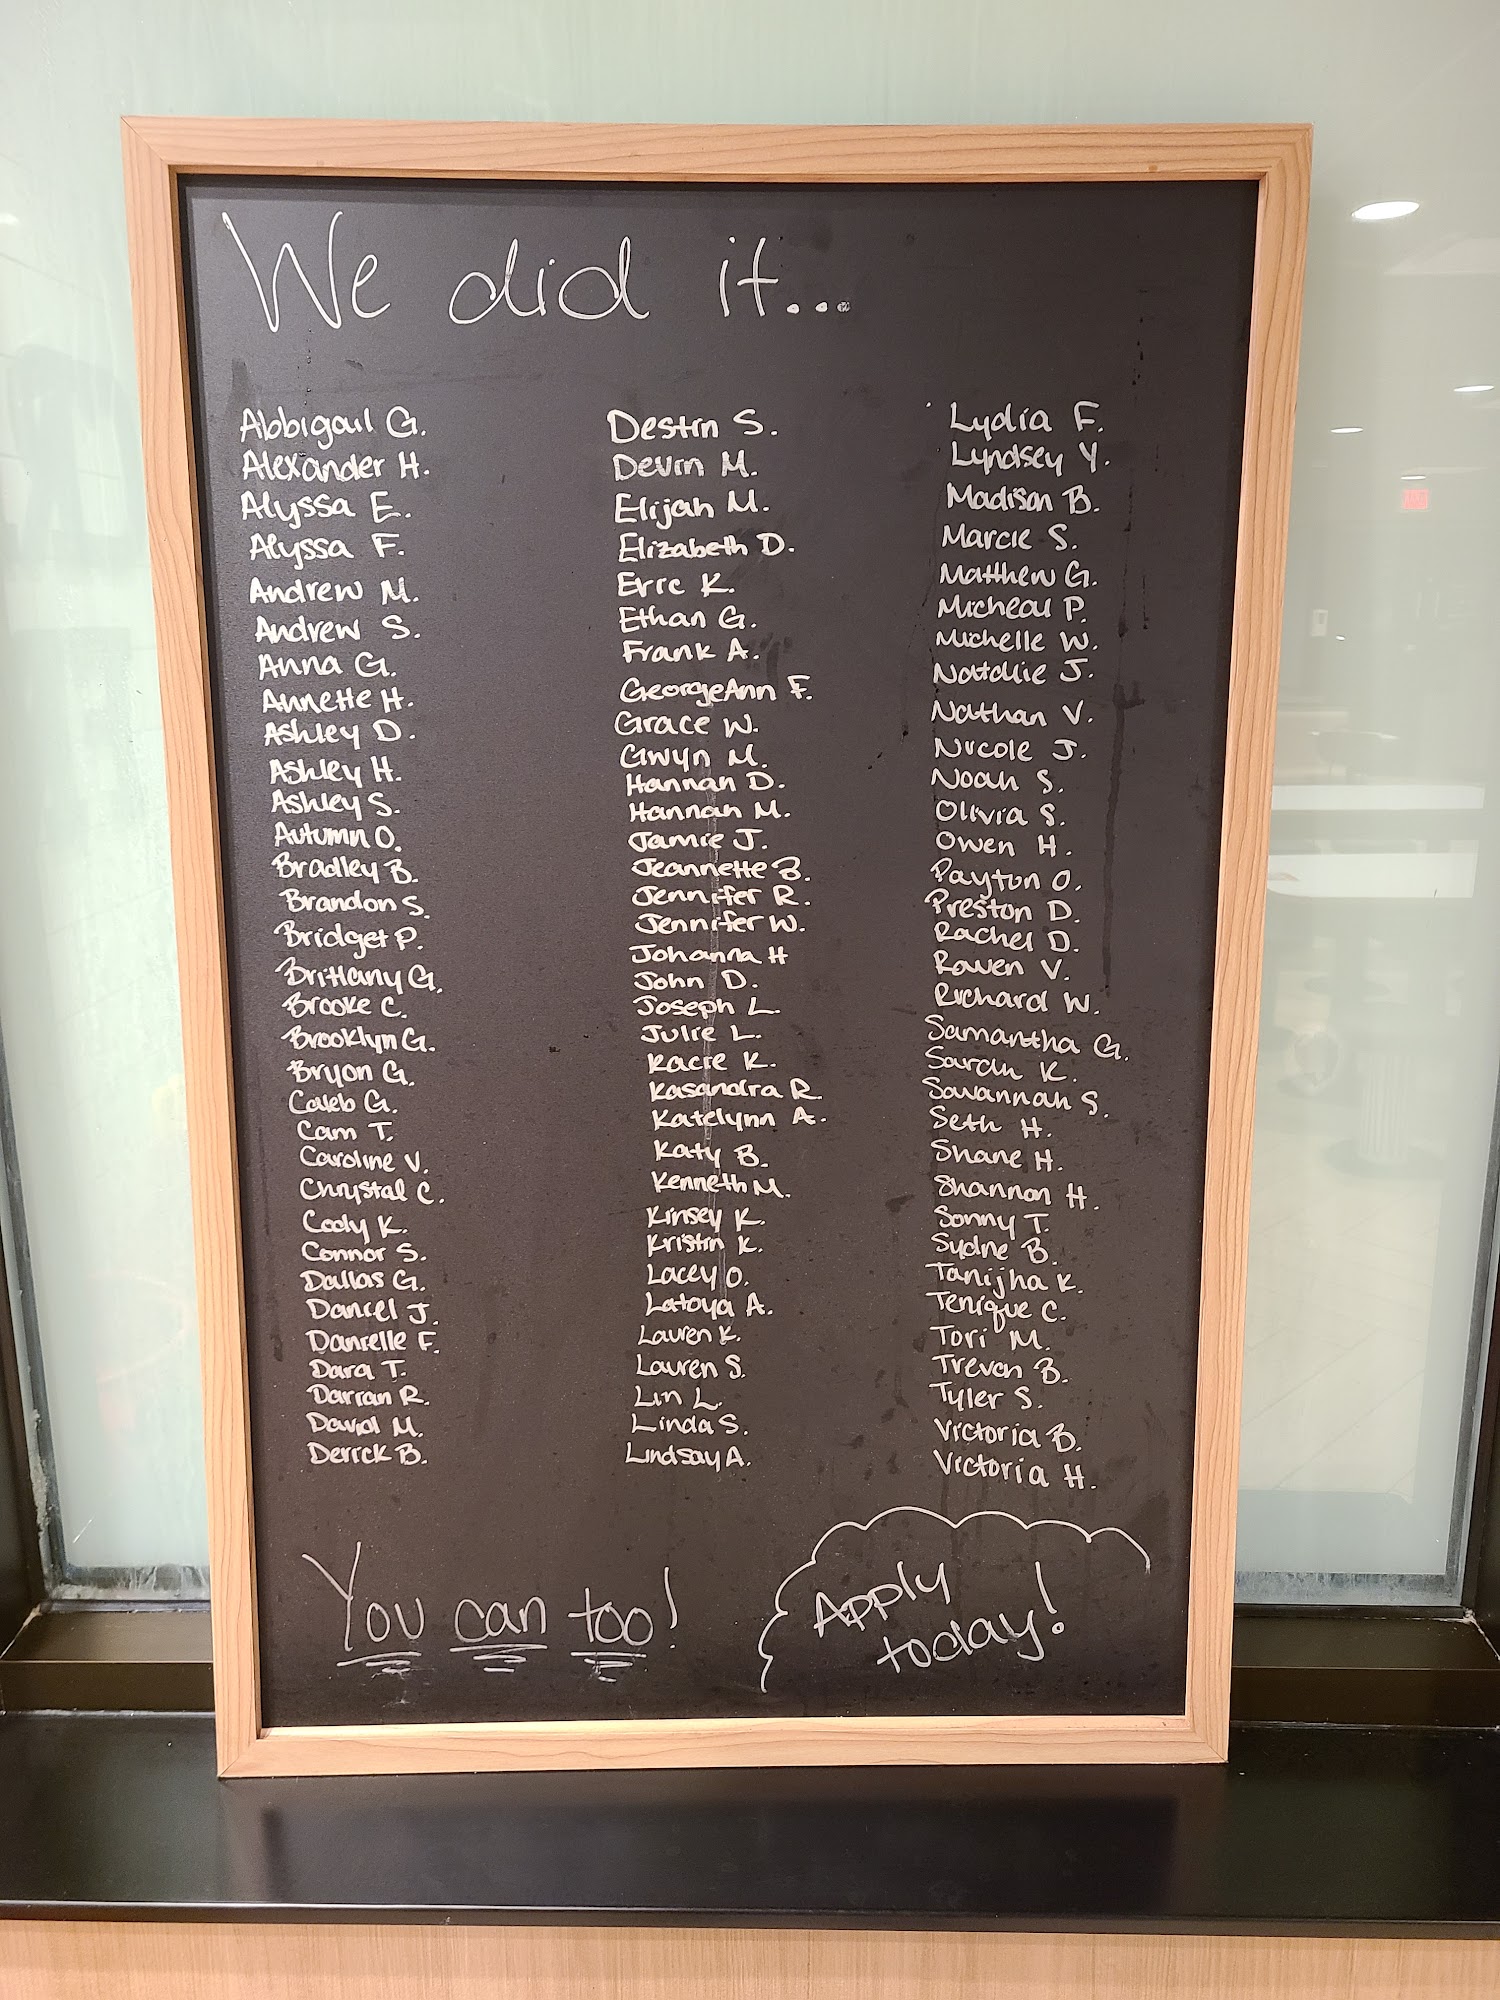 We did it...
Abbigail G.
Alexander H.
Alyssa E.
Alyssa F.
Andrew M.
Andrew S.
Anna G.
Annette H.
Ashley D.
Ashley H.
Ashley S.
Autumn O.
Bradley B.
Brandon S.
Bridget P.
Brittany G.
Brooke C.
Brooklyn G.
Bryon G.
Caleb G.
Cam T.
Caroline V.
Chrystal C.
Cody K.
Connor S.
Dallas G.
Daniel J.
Danielle F.
Dara T.
Darran R.
David M.
Derrick B.
Destin S.
Devin M.
Elijah M.
Elizabeth D.
Eric K.
Ethan G.
Frank A.
GeorgeAnn F.
Grace W.
Gwyn M.
Hannah D.
Hannah M.
Jamie J.
Jeannette B.
Jennifer R.
Jennifer W.
Johanna H
John D.
Joseph L.
Julie L.
Kacie K.
Kasandra R.
Katelynn A.
Katy B.
Kenneth M.
Kinsey K.
Kristin K.
Lacey O.
Latoya A.
Lauren K.
Lauren S.
Lin L.
Linda S.
Lindsay A.
Lydia F.
Lyndsey Y.
Madison B.
Marcie S.
Matthew G.
Micheal P.
Michelle W.
Natalie J.
Nathan V.
Nicole J.
Noah S.
Olivia S.
Owen H.
Payton O.
Preston D.
Rachel D.
Raven V.
Richard W.
Samantha G.
Sarah K.
Savannah S.
Seth H.
Shane H.
Shannon H.
Sonny T.
Sydne B.
Tanijha K.
Tenique C.
Tori M.
Trevon B.
Tyler S.
Victoria B.
Victoria H.
You can too!
Apply
today!